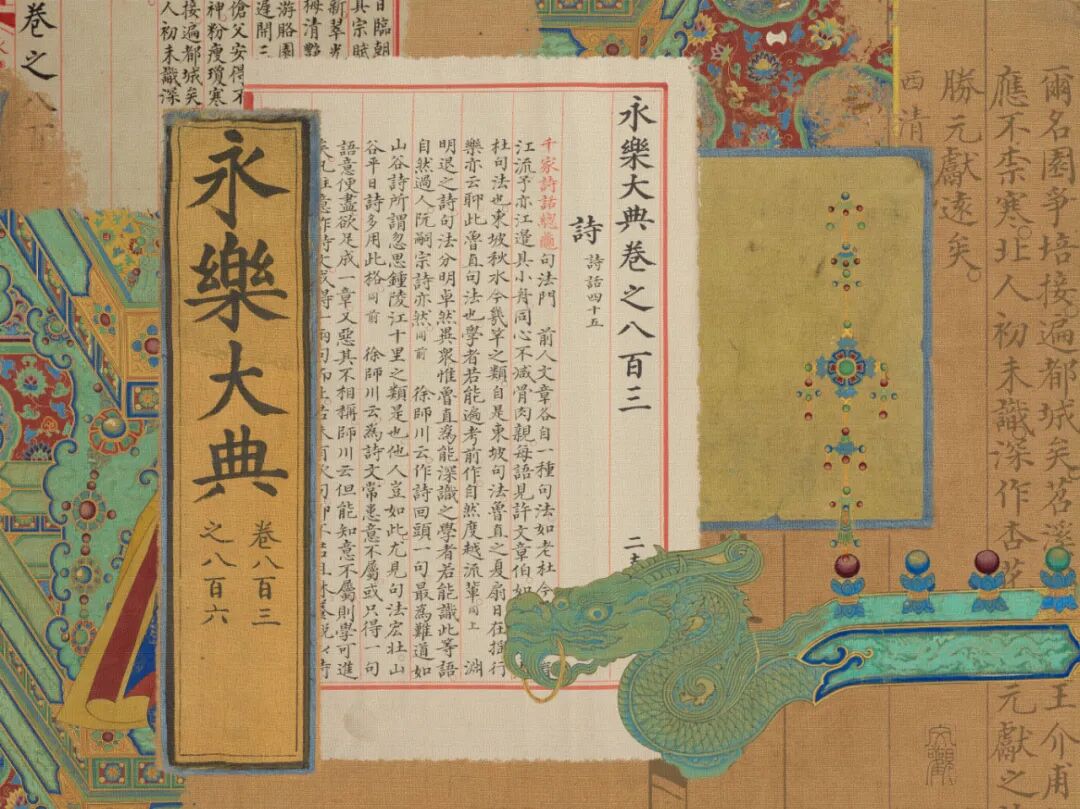 爾名園爭培接遍都城矣苕溪
王介甫
應不柰寒北人初未識深作杏花
元獻之
勝元獻遠矣
西清
永樂大典卷之八百三
二支
詩 詩話四十五
千家詩話總龜句法門 前人文章各自一種句法如老杜今
江流予亦江邊具小舟同心不減骨肉親每語見許文章伯如
杜句法也東坡秋水今幾竿之類自是東坡句法魯直之夏扇日在搖行
樂亦云聊此魯直句法也學者若能遍考前作自然度越流輩同上 淵
明退之詩句法分明卓然異衆惟魯直爲能深識之學者若能識此等語
自然過人阮嗣宗詩亦然同前 徐師川云作詩回頭一句最爲難道如
山谷詩所謂忽思鍾陵江十里之類是也他人豈如此尤見句法宏壯山
谷平日詩多用此格同前 徐師川云爲詩文常患意不屬或只得一句
語意便盡欲足成一章又惡其不相稱師川云但能知意不屬則學可進
日臨朝
其宗賦
新翠光
清艷
園
遲開三
傖父安得不
神粉瘦瓊寒
接遍都城矣
人初未識深
卷之八
永樂大典
卷八百三
之八百六